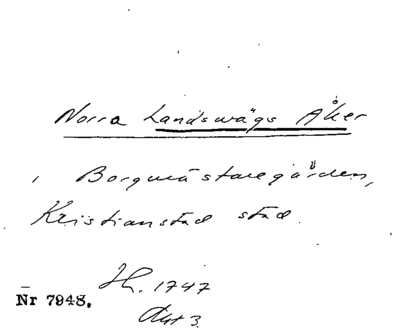 Norra Landswägs Åker
i Borgmästaregården,
Kristianstad stad.
H. 1747
Nr 7948.
Akt 3.